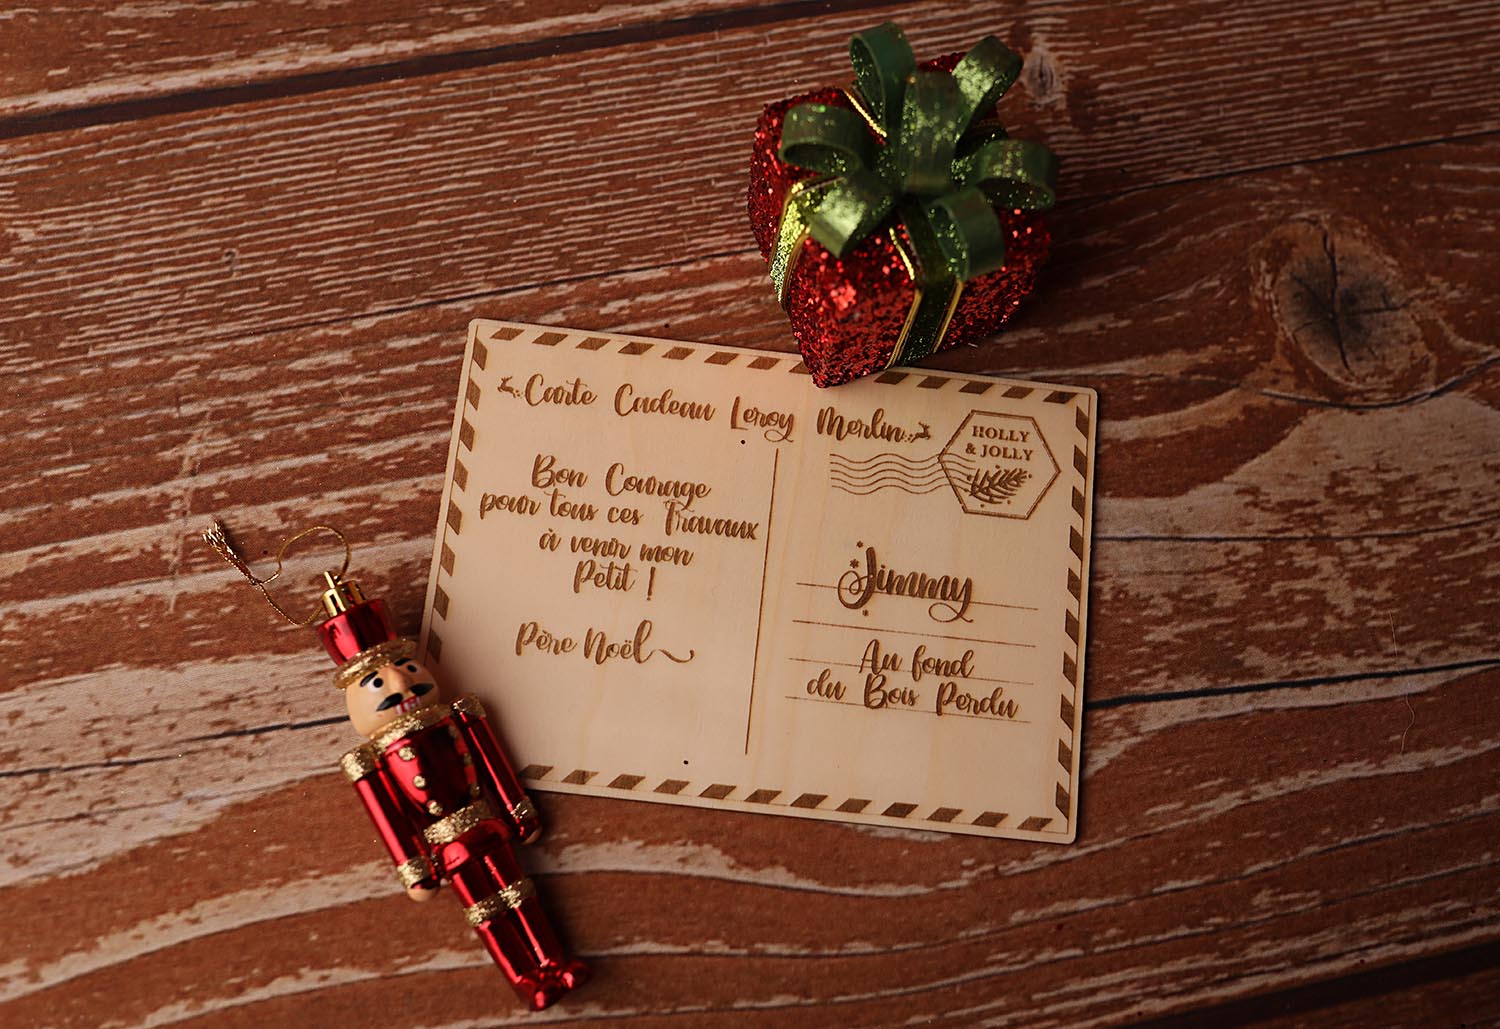 Carte Cadeau Leroy Merlin
HOLLY
& JOLLY
Bon Courage
pour tous ces Travaux
à venir mon
Petit !
Père Noël
Jimmy
Au fond
du Bois Perdu